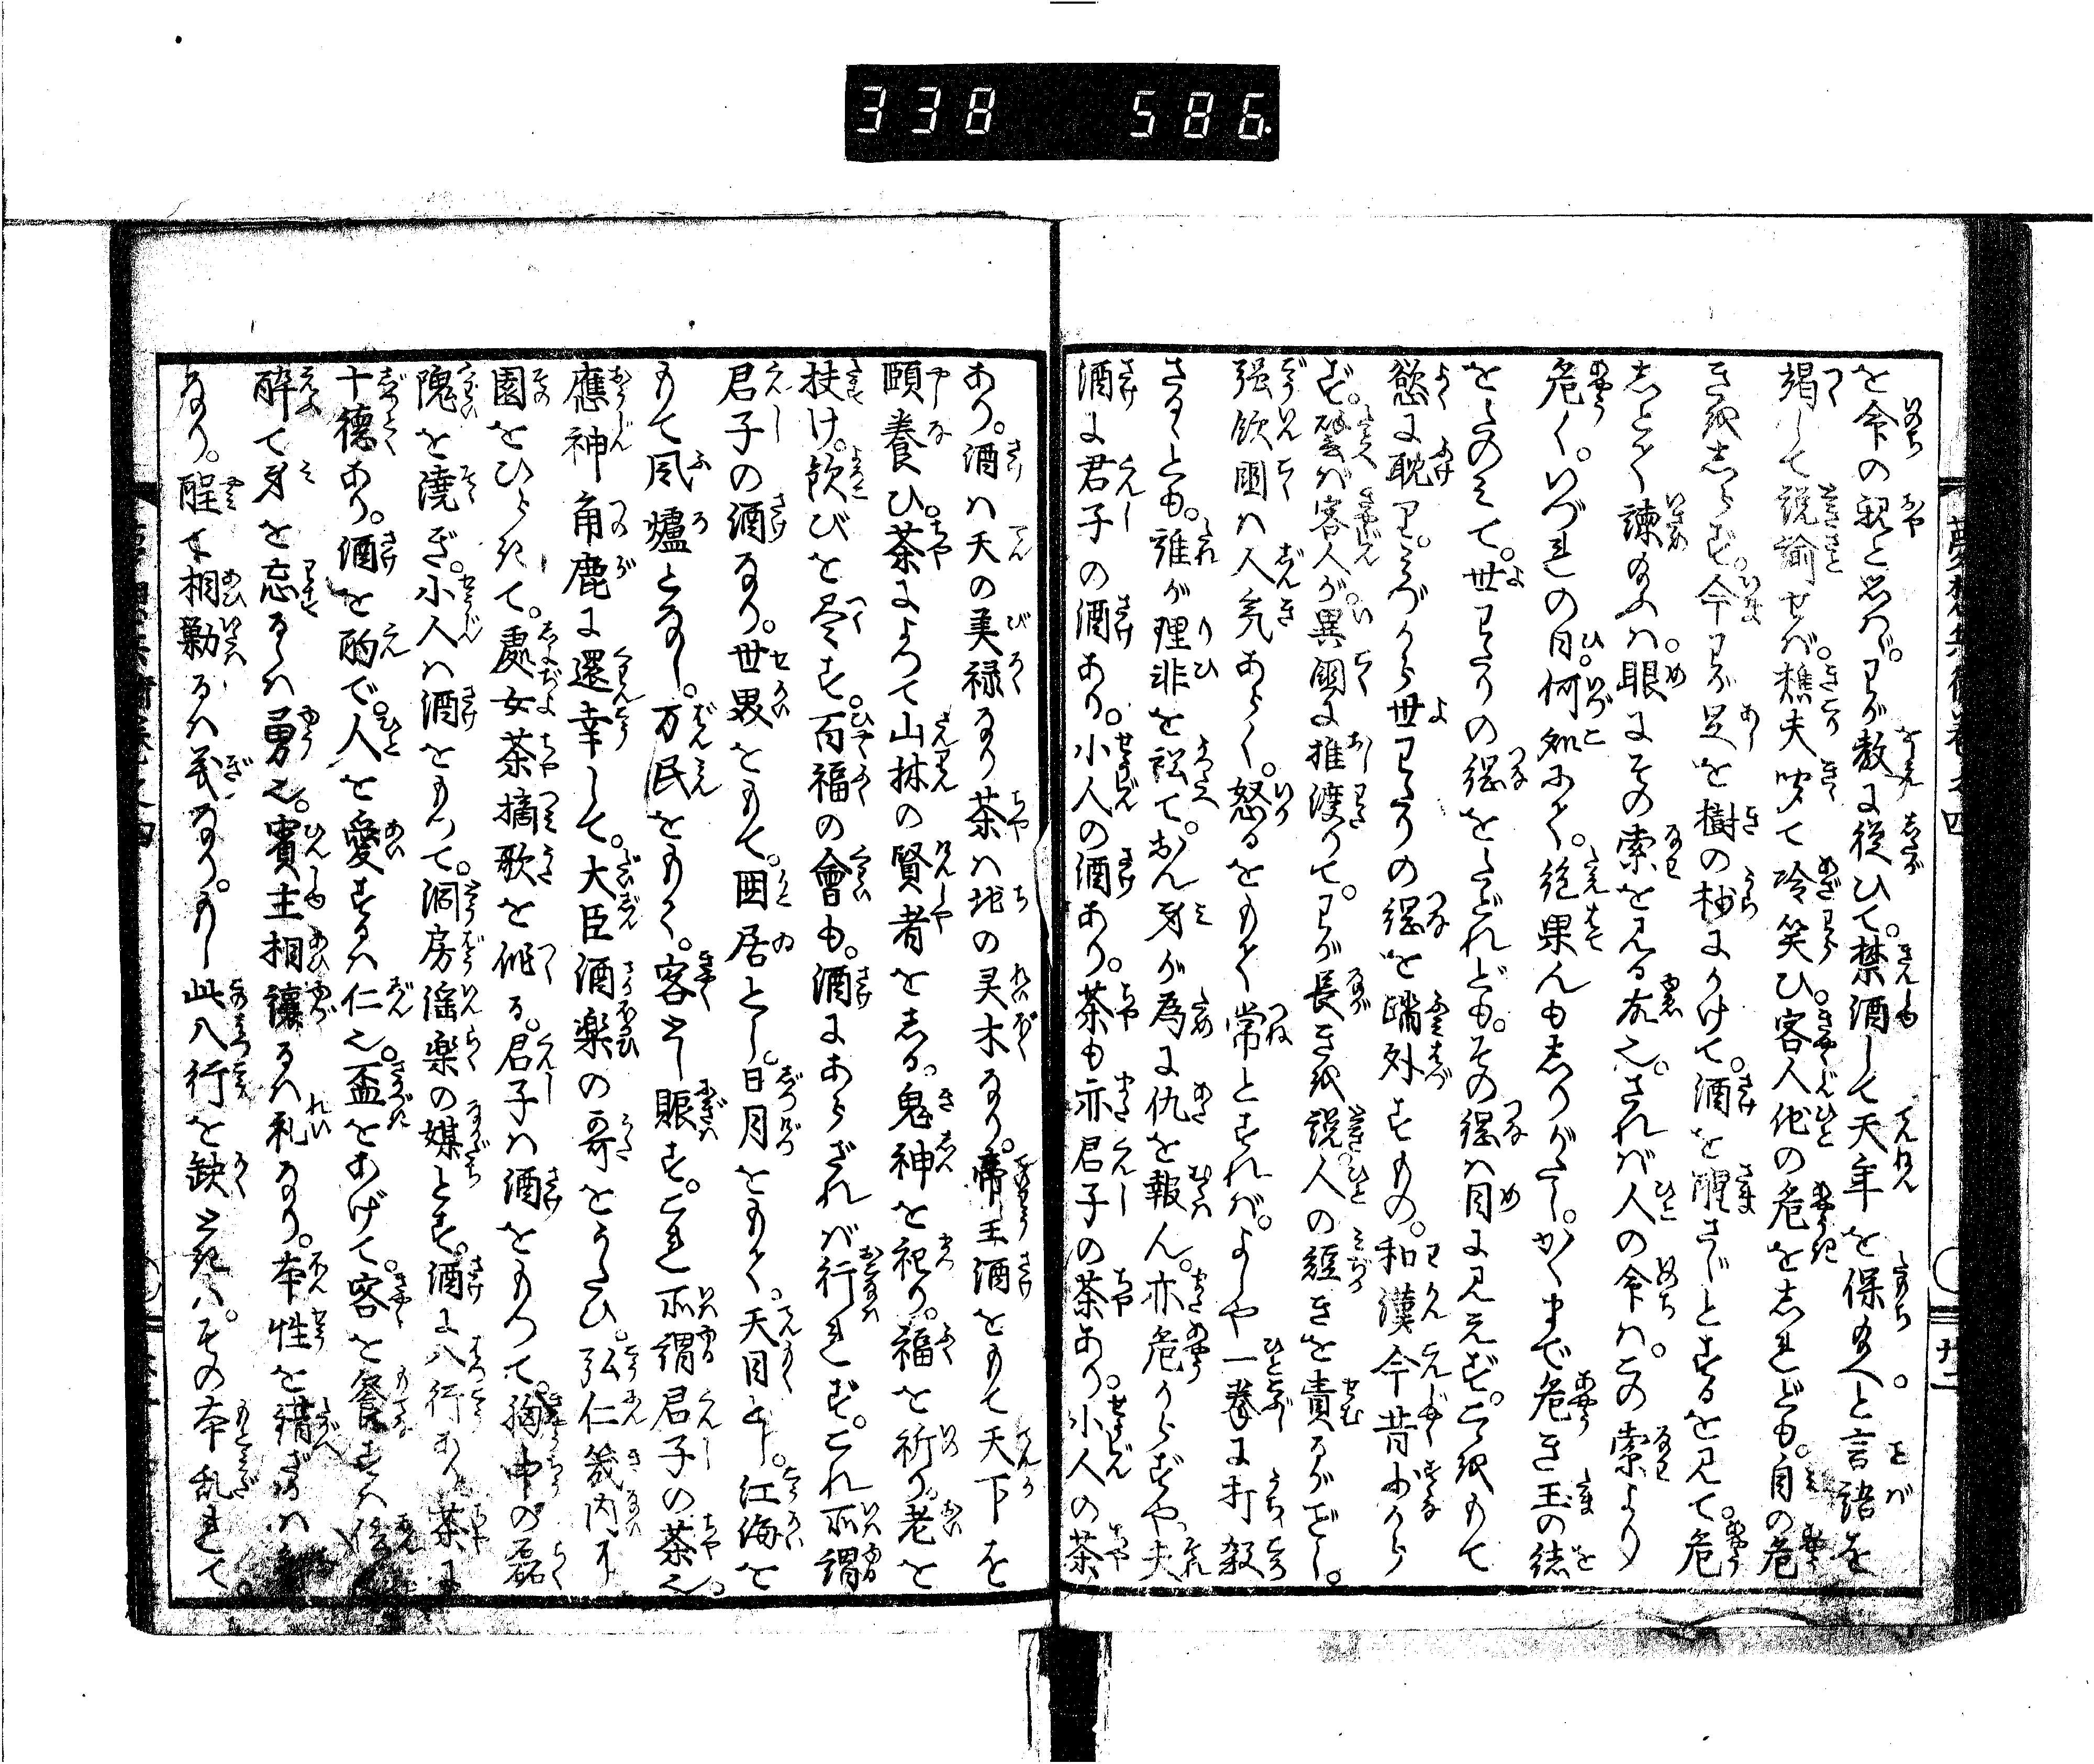 338 586
を命の親と思はゞ。わが教に従ひて。禁酒して天年を保給へと言語を
竭して説諭せば。樵夫咲て冷笑ひ。客人他の危を志れども。自の危
きを志らず。今わが足を樹の枝にかけて。酒を醒さじとするを見て。危
しとて諫給ふは。眼にその索を見る故也。されば人の命は。この索より
危く。いづれの日。何処にて。絶果んも志りがたし。かくまで危き玉の緒
をたのみて。世わたりの綱をたどれども。その綱は目に見えず。こゝをもて
慾に耽り。みづから世わたりの綱を踏外すもの。和漢今昔少から
ず。譬ば客人が。異国に推渡りて。わが長きを説。人の短きを責るがごとし。
強飲国は人気あらく。怒るをもて常とすれば。よしや一拳に打殺
さるゝとも。誰が理非を訟て。おん身が為に仇を報ん。亦危からずや。夫
酒に君子の酒あり。小人の酒あり。茶も亦君子の茶あり。小人の茶
あり。酒は天の美禄なり茶は地の灵木なり。帝王酒をもて天下を
頤養ひ。茶によつて山林の賢者をしる。鬼神を祀り。福を祈り。老を
扶け。飲びを尽す。百福の會も。酒にあらざれば行れず。これ所謂
君子の酒なり。世界をもて。囲居とし。日月をもて。天目とし。江海を
もて風爐となし。万民をもて。客とし賑す。これ所謂君子の茶也。
應神角鹿に還幸して。大臣酒楽の哥をうたひ。弘仁畿内に
園をひらきて。處女茶摘歌を作る。君子は酒をもつて。胸中の磊
隗を澆ぎ。小人は酒をもつて。洞房淫楽の媒とす。酒に八行あり茶に
十徳あり。酒を酌で。人を愛するは仁也。盃をあげて。客を餐すは信也
酔て身を忘るゝは勇也。賓主相譲るは礼なり。本性を違ざるは
なり。醒て相勤るは義なり。もし此八行を缺ときは。その本乱れて。